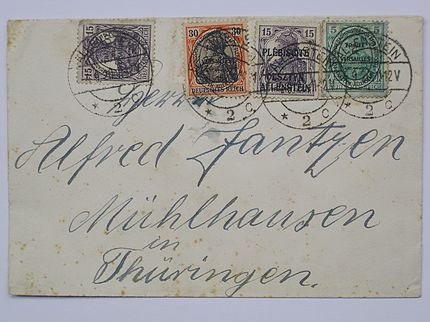 15 15
30 30
DEUTSCHES REICH
15 15
PLÉBISCITE
OLSZTYN
ALLENSTEIN
5
TRAITÉ
VERSAILLES
ALLENSTEIN
12V
* 2 c
* 2 c
* 2 c
Herrn
Alfred Jantzen
Mühlhausen
in
Thüringen.